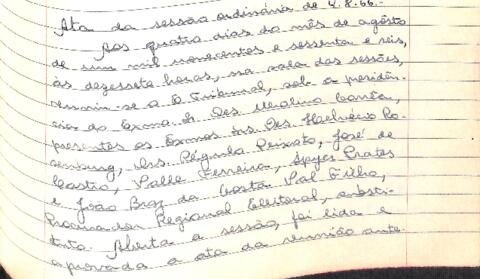 Ata da sessão ordinária de 4.8.66.-
Aos quatro dias do mês de agôsto
de um mil novecentos e sessenta e seis,
às dezessete horas, na sala das sessões,
reuniu-se o E. Tribunal, sob a presidên-
cia do Exmo. Sr. Des. Merolino Corrêa,
presentes os Exmos. Srs. Des. Helvécio Ro-
senburg, Drs. Régulo Peixoto, José de
Castro, Valle Ferreira, Apys Prates
e João Braz da Costa Val Filho,
Procurador Regional Eleitoral, substi-
tuto. Aberta a sessão, foi lida e
aprovada a ata da reunião ante-